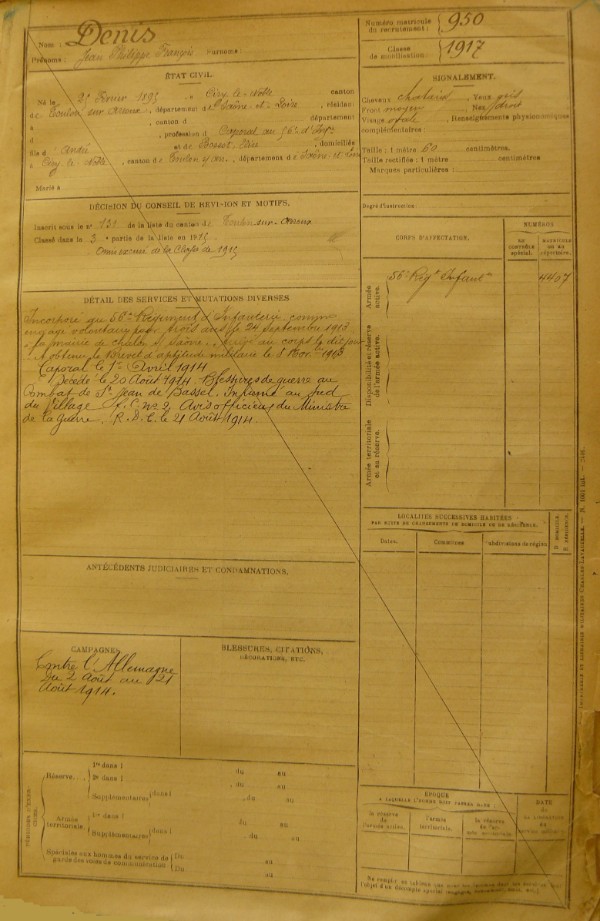 Nom : Denis
Prénoms : Jean Philippe François Surnoms :
Numéro matricule du recrutement : 950
Classe de mobilisation : 1917
ÉTAT CIVIL.
Né le Février canton
de Toulon sur Arroux, département de Saône-et-Loire, résidant
à , canton d , département
d , profession d Caporal au 56e d'Infie
fils d' André et de domiciliés
canton de Toulon s/ département de Saône-et-Loire
Marié à
SIGNALEMENT.
Cheveux châtain, Yeux gris
Front moyen Nez droit
Visage ovale, Renseignements physionomiques
complémentaires :
Taille : 1 mètre 60 centimètres.
Taille rectifiée : 1 mètre centimètres
Marques particulières :
DÉCISION DU CONSEIL DE REVISION ET MOTIFS.
Inscrit sous le n° 131 de la liste du canton de Toulon-sur-Arroux
Classé dans la 3e partie de la liste en 1915
de la Classe de 1915
Degré d'instruction :
CORPS D'AFFECTATION.
NUMÉROS
au contrôle spécial.
matricule ou au répertoire.
Armée active.
56e Régt d'Infantie
4407
Disponibilité ou réserve de l'armée active.
Armée territoriale et sa réserve.
DÉTAIL DES SERVICES ET MUTATIONS DIVERSES
Incorporé au 56e Régiment d'Infanterie, comme
engagé volontaire pour trois ans le 24 septembre 1913
à la mairie de Chalon s/ Saône. Arrivé au corps le dit jour
A obtenu le Brevet d'aptitude militaire le 8 1913
Caporal le 1er Avril 1914
Décédé le 20 Août 1914. Blessures de guerre au
Combat de St Jean de Bassel. Inhumé au sud
du village F. C. n° 2, Avis officiel du Ministre
de la guerre. R. D. C. le 21 Août 1914.
LOCALITÉS SUCCESSIVES HABITÉES
PAR SUITE DE CHANGEMENTS DE DOMICILE OU DE RÉSIDENCE.
Dates.
Communes.
Subdivisions de région
D. DOMICILE
R. RÉSIDENCE
ANTÉCÉDENTS JUDICIAIRES ET CONDAMNATIONS.
CAMPAGNES
Contre l'Allemagne
Du 2 Août au 21
Août 1914.
BLESSURES, CITATIONS,
DÉCORATIONS, ETC.
PÉRIODES D'EXERCICES.
Réserve...
1re dans l du au
2e dans l du au
Supplémentaires dans l du au
Armée territoriale
1re dans l du au
Supplémentaires dans l du au
Spéciales aux hommes du service de
garde des voies de communication
Du au
Du au
ÉPOQUE
A LAQUELLE L'HOMME DOIT PASSER DANS :
la réserve de l'armée active.
l'armée territoriale.
la réserve de l'armée territoriale.
DATE
DE LA LIBÉRATION